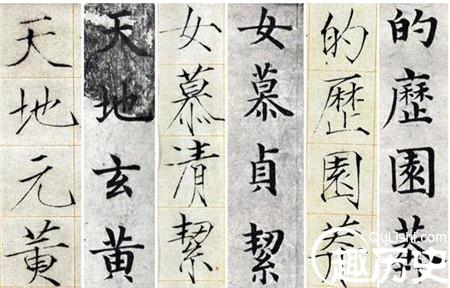 天地元黄
天地玄黄
女慕清絜
女慕貞絜
的歷園莽
的歷園莽
QuLishi.com
趣历史